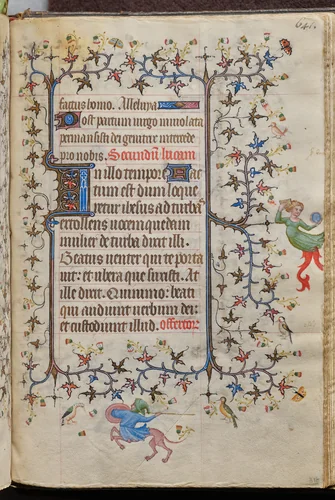 factus homo. Alleluya
Post partum uirgo inuiolata
permansisti dei genitrix intercede
pro nobis. Secundum lucam
In illo tempore Fac
tum est dum loque
retur ihesus ad turbas
extollens uocem quedam
mulier de turba dixit illi.
Beatus uenter qui te porta
uit: et ubera que suxisti. At
ille dixit. Quinimo: beati
qui audiunt uerbum dei:
et custodiunt illud. offertor